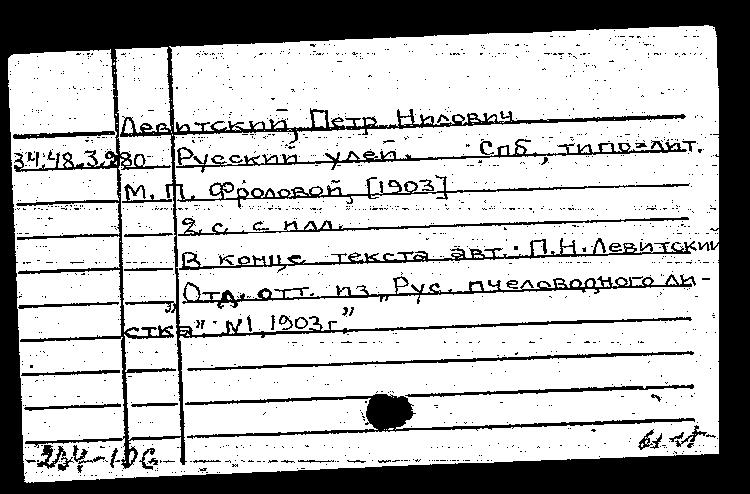 Левитский, Петр Нилович
34.48.3.980 Русский улей. Спб., типо-лит.
М. П. Фроловой, [1903]
2 с. с илл.
В конце текста авт.: П.Н.Левитский
Отд. отт. из „Рус. пчеловодного ли-
стка". №1, 1903г."